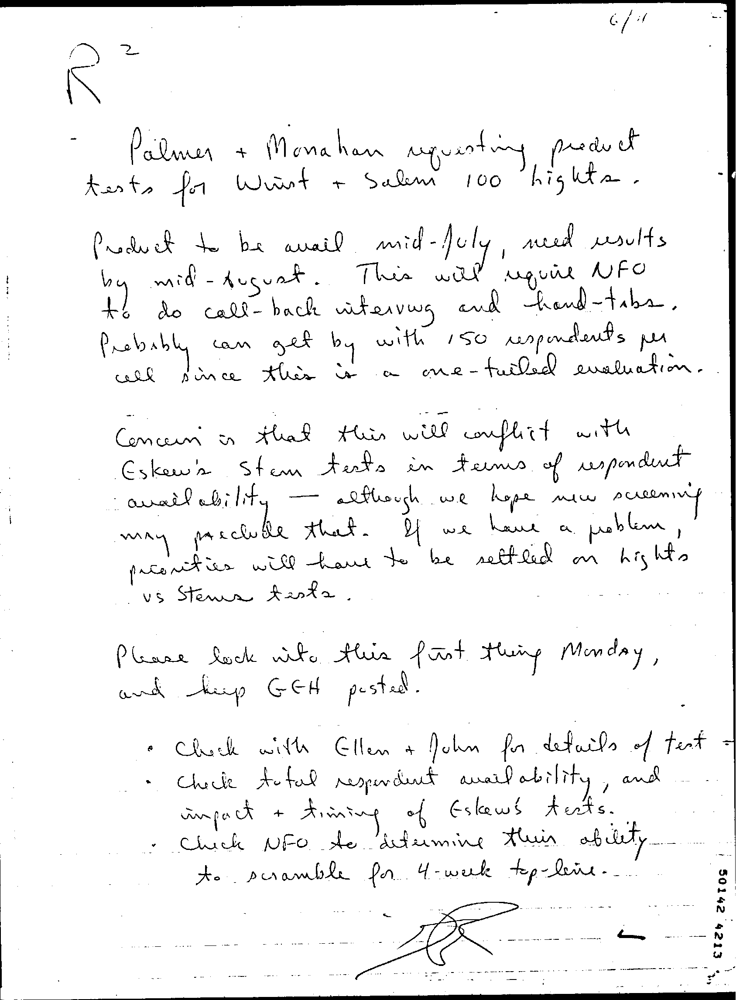 6/11
R²
- Palmer + Monahan requesting product
tests for Winst + Salem 100 Lights.
Product to be avail mid-July, need results
by mid-August. This will require NFO
to do call-back intervwg and hand-tabs.
Probably can get by with 150 respondents per
cell since this is a one-tailed evaluation.
Concern is that this will conflict with
Eskew's Stem tests in terms of respondent
availability — although we hope new screening
may preclude that. If we have a problem,
priorities will have to be settled on Lights
vs Stems tests.
Please look into this first thing Monday,
and keep GEH posted.
• Check with Ellen + John for details of test
• Check total respondent availability, and
impact + timing of Eskew's tests.
• Check NFO to determine their ability
to scramble for 4-week top-line.
50142 4213